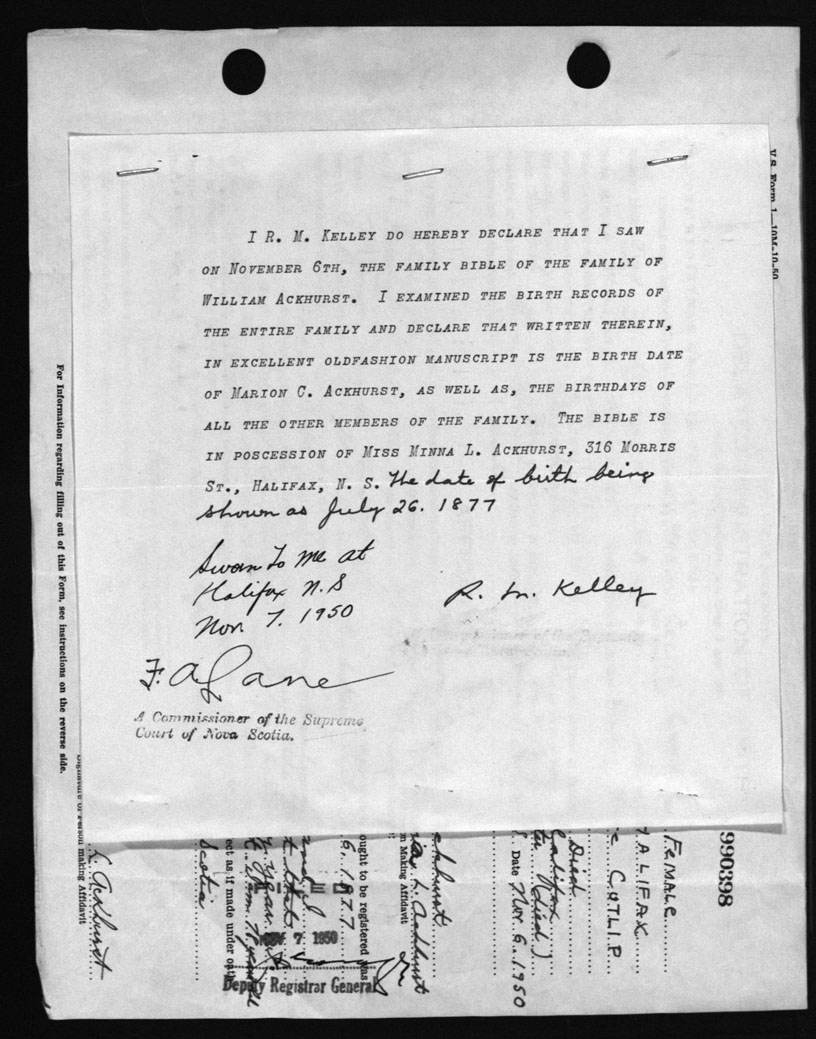 I R. M. KELLEY DO HEREBY DECLARE THAT I SAW
ON NOVEMBER 6TH, THE FAMILY BIBLE OF THE FAMILY OF
WILLIAM ACKHURST. I EXAMINED THE BIRTH RECORDS OF
THE ENTIRE FAMILY AND DECLARE THAT WRITTEN THEREIN,
IN EXCELLENT OLDFASHION MANUSCRIPT IS THE BIRTH DATE
OF MARION C. ACKHURST, AS WELL AS, THE BIRTHDAYS OF
ALL THE OTHER MEMBERS OF THE FAMILY. THE BIBLE IS
IN POSCESSION OF MISS MINNA L. ACKHURST, 316 MORRIS
ST., HALIFAX, N. S. The date of birth being
shown as July 26. 1877
Sworn to me at
Halifax N.S
Nov. 7. 1950
R. M. Kelley
F. A. Lane
A Commissioner of the Supreme
Court of Nova Scotia.
V.S. Form 1—10M-10-50
For Information regarding filling out of this Form, see instructions on the reverse side.
990398
FEMALE
ALIFAX
Died
Halifax
(died)
Date Nov. 6. 1950
ckhurst
L. Ackhurst
n Making Affidavit
ought to be registered was
6. 1877
NOV 7 1950
ect as if made under oath
Deputy Registrar General
Scotia
Signature of Person making Affidavit
L. Ackhurst